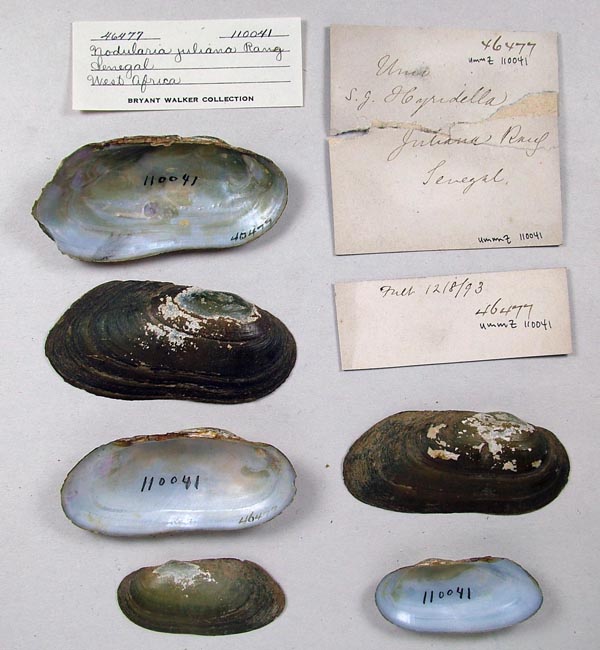 46477 110041
Nodularia juliana Rang
Senegal
West Africa
BRYANT WALKER COLLECTION
46477
ummz 110041
Unio
S.g. Hyridella
Juliana Rang
Senegal.
ummz 110041
12/8/93.
46477
ummz 110041
110041
46477
110041
46477
110041